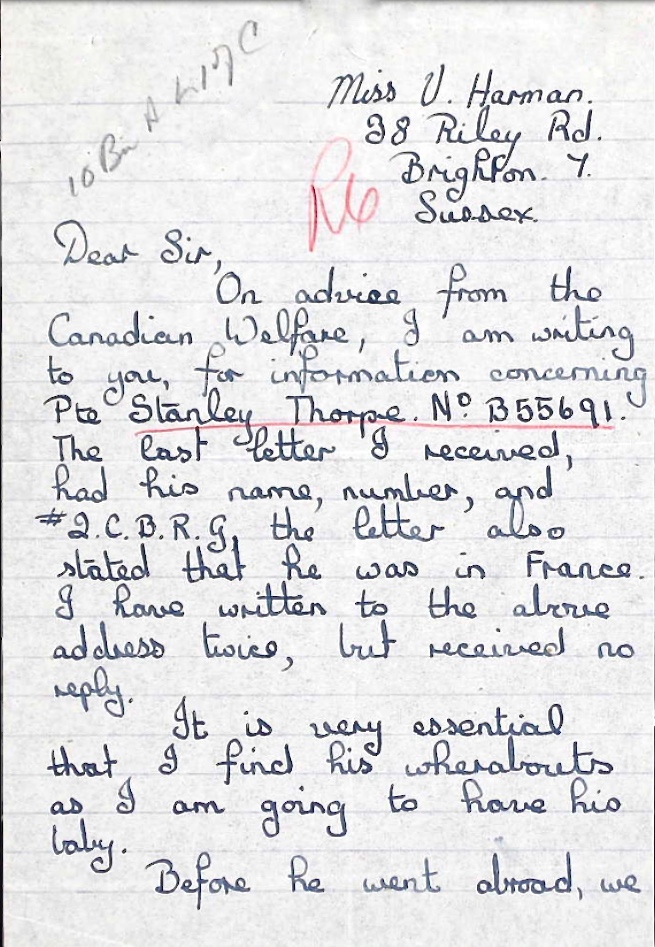 Miss V. Harman.
38 Riley Rd.
Brighton. 7.
Sussex.
R6
Dear Sir,
On advice from the
Canadian Welfare, I am writing
to you, for information concerning
Pte Stanley Thorpe. Nº B55691.
The last letter I received,
had his name, number, and
#2.C.B.R.G, the letter also
stated that he was in France.
I have written to the above
address twice, but received no
reply.
It is very essential
that I find his wherabouts
as I am going to have his
baby.
Before he went abroad, we